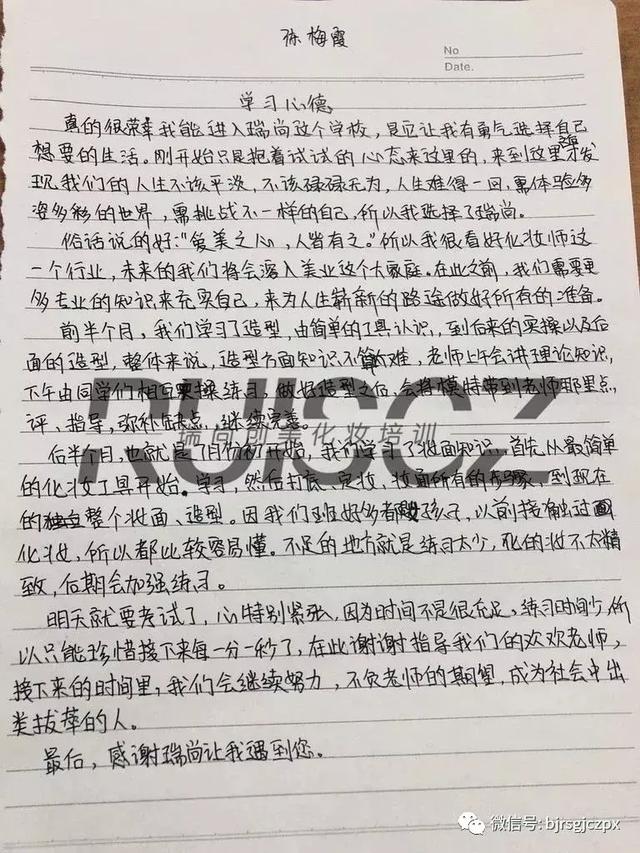 孙梅霞
No
Date.
学习心德
真的很荣幸我能进入瑞尚这个学校，是它让我有勇气选择自己
想要的生活。刚开始只是抱着试试的心态来这里的，来到这里才发
现，我们的人生不该平淡，不该碌碌无为，人生难得一回，需体验多
姿多彩的世界，需挑战不一样的自己，所以我选择了瑞尚。
俗话说的好："爱美之心，人皆有之。"所以我很看好化妆师这
一个行业，未来的我们将会深入美业这个大家庭。在此之前，我们需要更
多专业的知识来充实自己，来为人生崭新的路途做好所有的准备。
前半个月，我们学习了造型，由简单的工具认识，到后来的实操以及后
面的造型，整体来说，造型方面知识不算难，老师上午会讲理论知识，
下午由同学们相互练习，做好造型之后，会将模特带到老师那里点
评，指导，弥补缺点，继续完善。
RUISCZ
瑞尚创美化妆培训
后半个月，也就是7月份初开始，我们学习了妆面知识，首先从最简单
的化妆工具开始学习，然后打底、定妆，妆面所有的步骤，到现在
的整个妆面、造型。因我们班好多都是女孩子，以前接触过
化妆，所以都比较容易懂。不足的地方就是练习太少，化的妆不太精
致，后期会加强练习。
明天就要考试了，心特别紧张，因为时间不是很充足，练习时间少，所
以只能珍惜接下来每一分一秒了，在此谢谢指导我们的欢欢老师，
接下来的时间里，我们会继续努力，不负老师的期望，成为社会中出
类拔萃的人。
最后，感谢瑞尚让我遇到您。
微信号: bjrsgjczpx